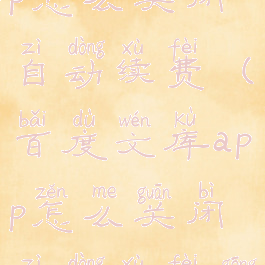 p怎么关闭
zì dòng xù fèi
自动续费（
bǎi dù wén kù
百度文库ap
zěn me guān bì
p怎么关闭
zì dòng xù fèi zěng